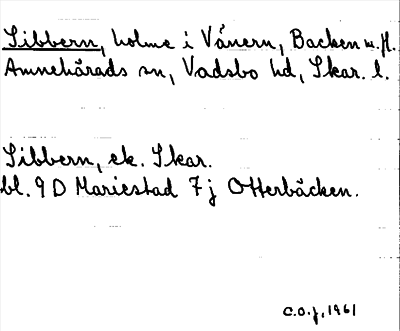 Sibbern, holme i Vänern, Backen m.fl.
Amnehärads sn, Vadsbo hd, Skar. l.
Sibbern, ek. Skar.
bl. 9 D Mariestad 7 j Otterbäcken.
C.O.J., 1961